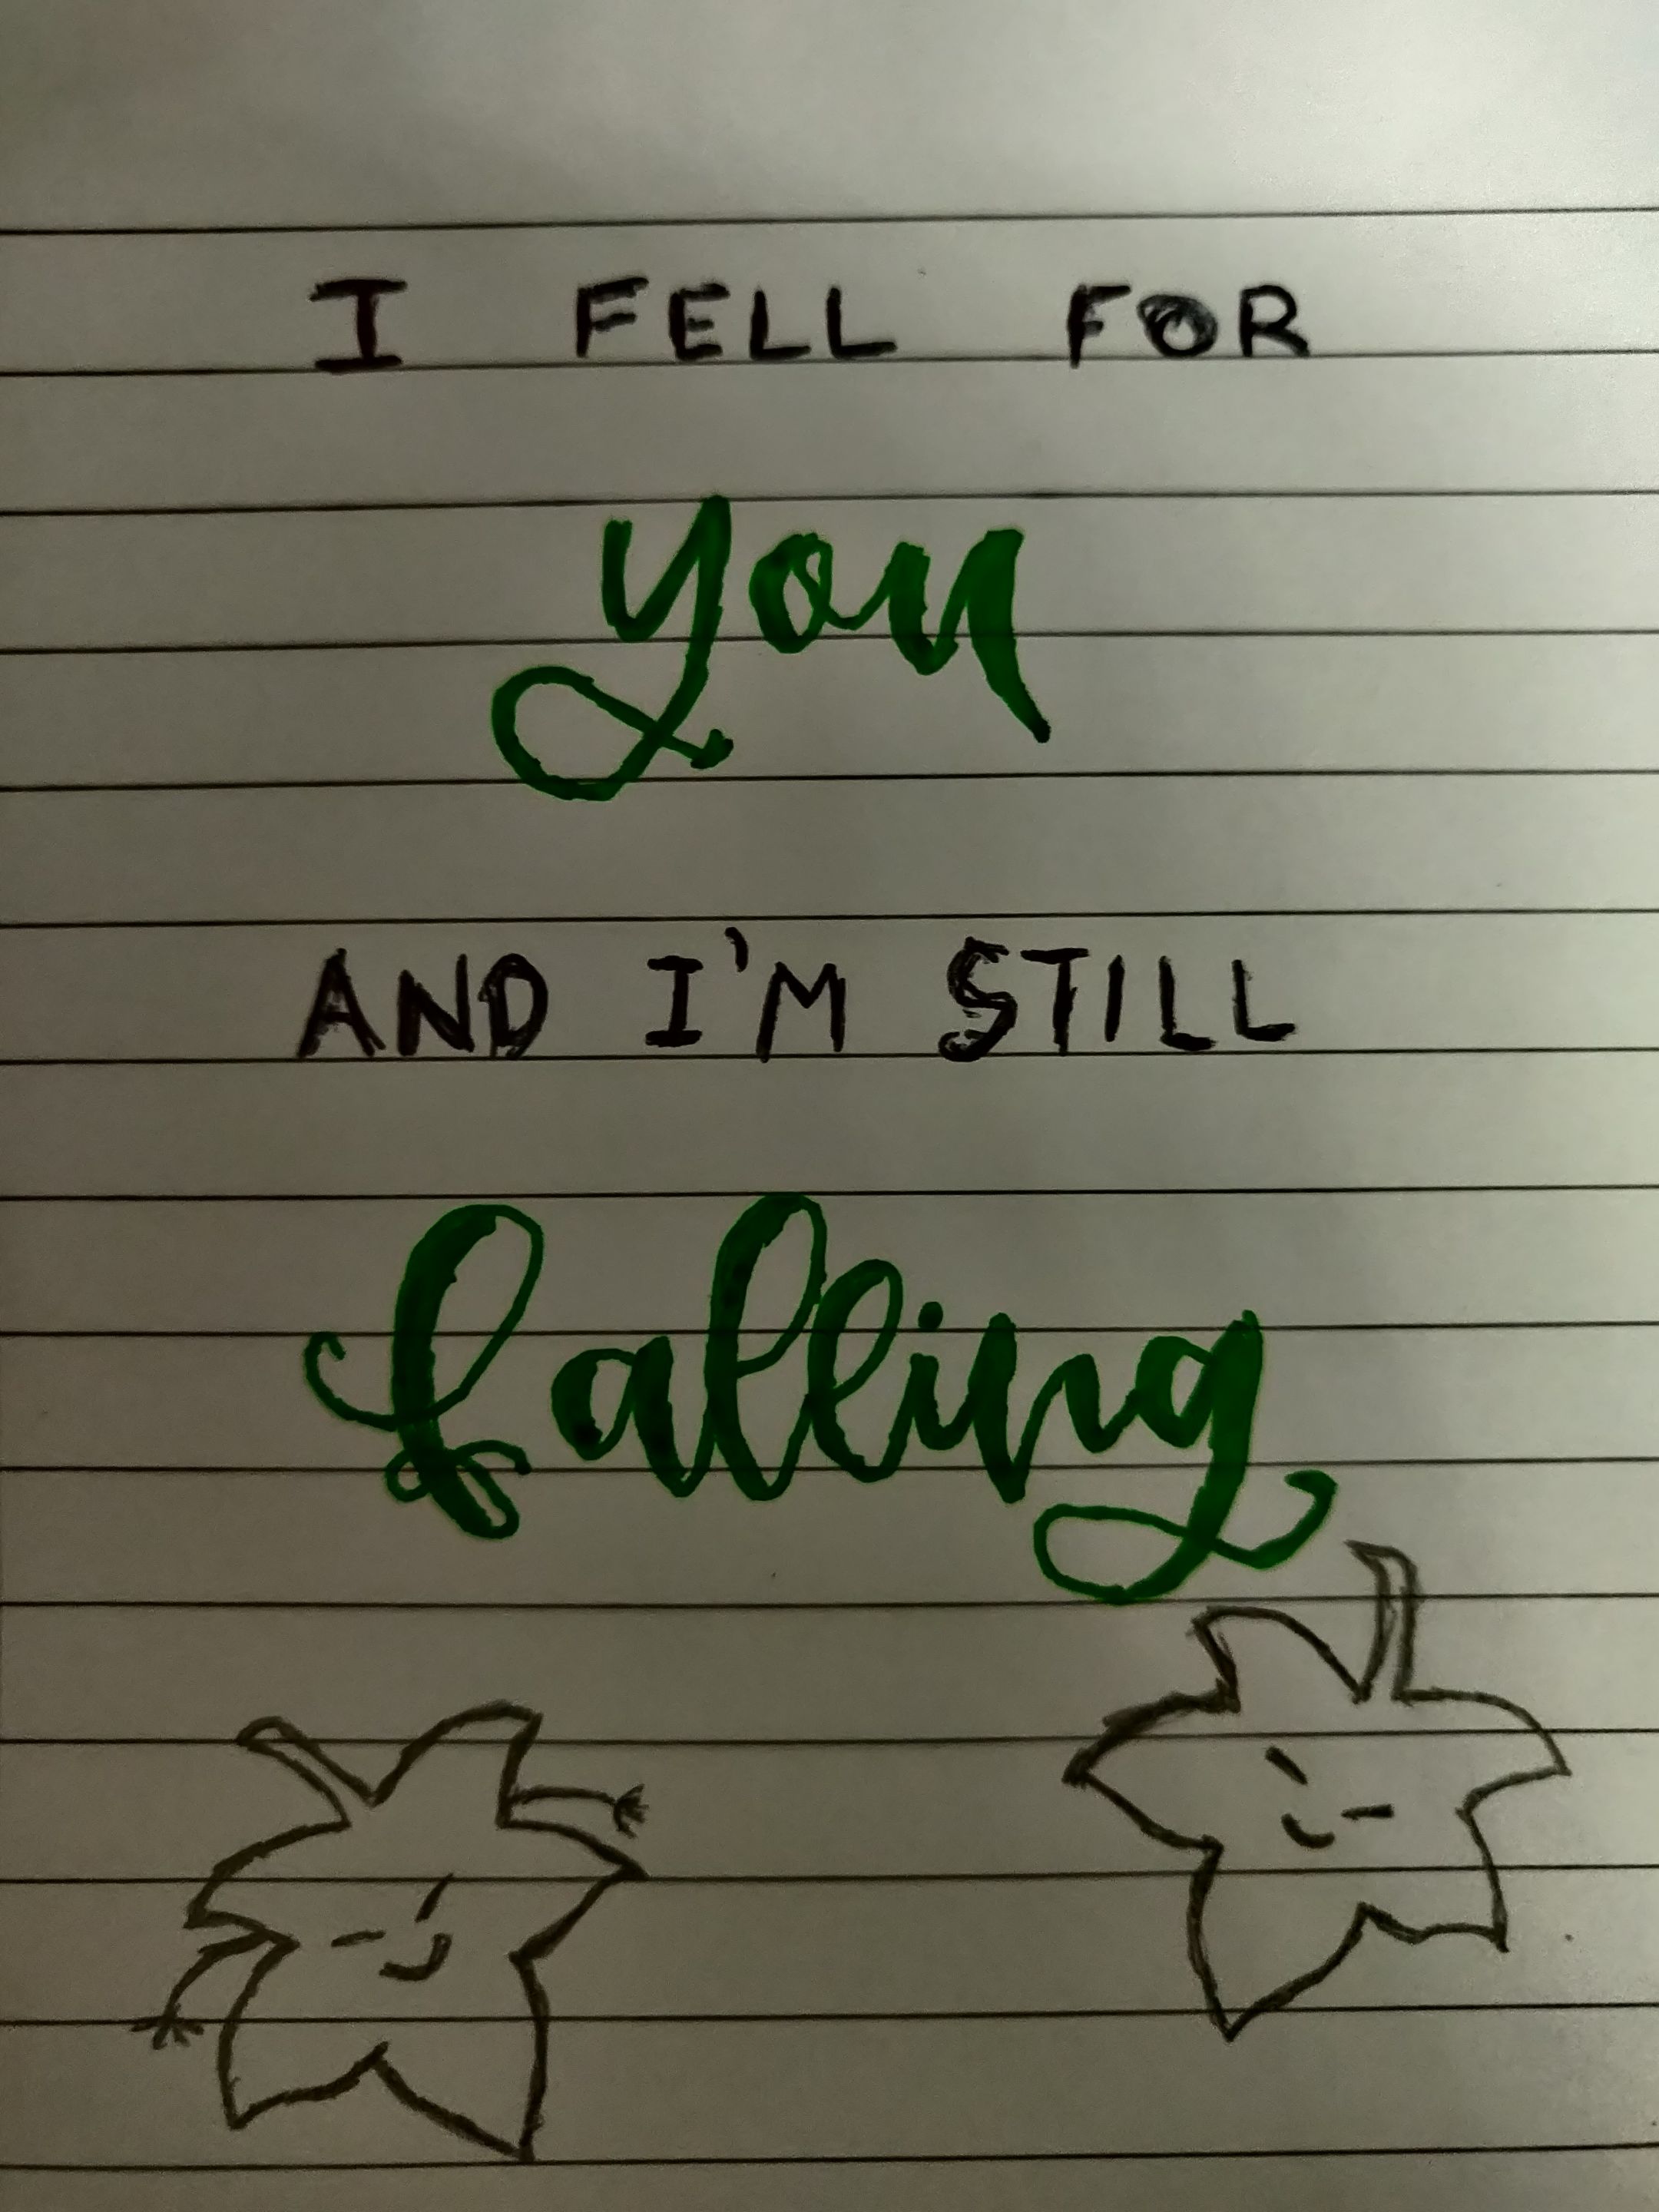 I FELL FOR
you
AND I'M STILL
falling